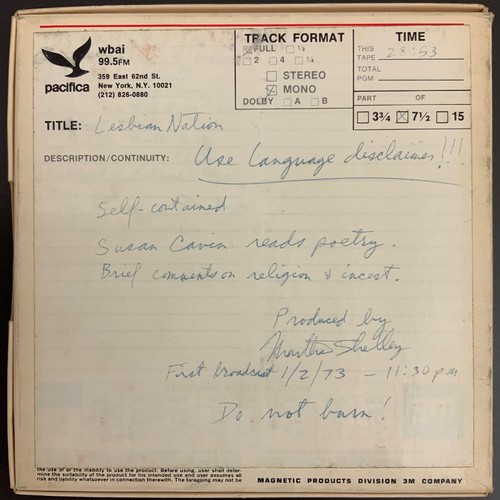 wbai
99.5FM
pacifica
359 East 62nd St.
New York, N.Y. 10021
(212) 826-0880
TRACK FORMAT
FULL ½
2 4 ¼
STEREO
MONO
DOLBY A B
TIME
THIS TAPE 28:53
TOTAL PGM
PART OF
3¾ 7½ 15
TITLE: Lesbian Nation
DESCRIPTION/CONTINUITY: Use Language disclaimer!!!
Self-contained
Susan Cavin reads poetry.
Brief comments on religion & incest.
Produced by
Martha Shelley
First broadcast 1/2/73 - 11:30 p.m.
Do not burn!
the use of or the inability to use the product. Before using, user shall deter-
mine the suitability of the product for his intended use and user assumes all
risk and liability whatsoever in connection therewith. The foregoing may not be
MAGNETIC PRODUCTS DIVISION 3M COMPANY